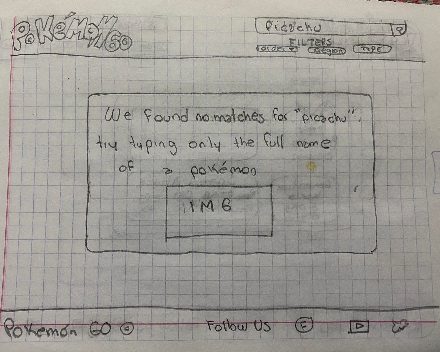 PoKéMoN GO
Picachu
FILTERS
Region
TYPE
We found no matches for "picachu".
try typing only the full name
of a pokémon
IMG
Pokemon GO
Follow Us